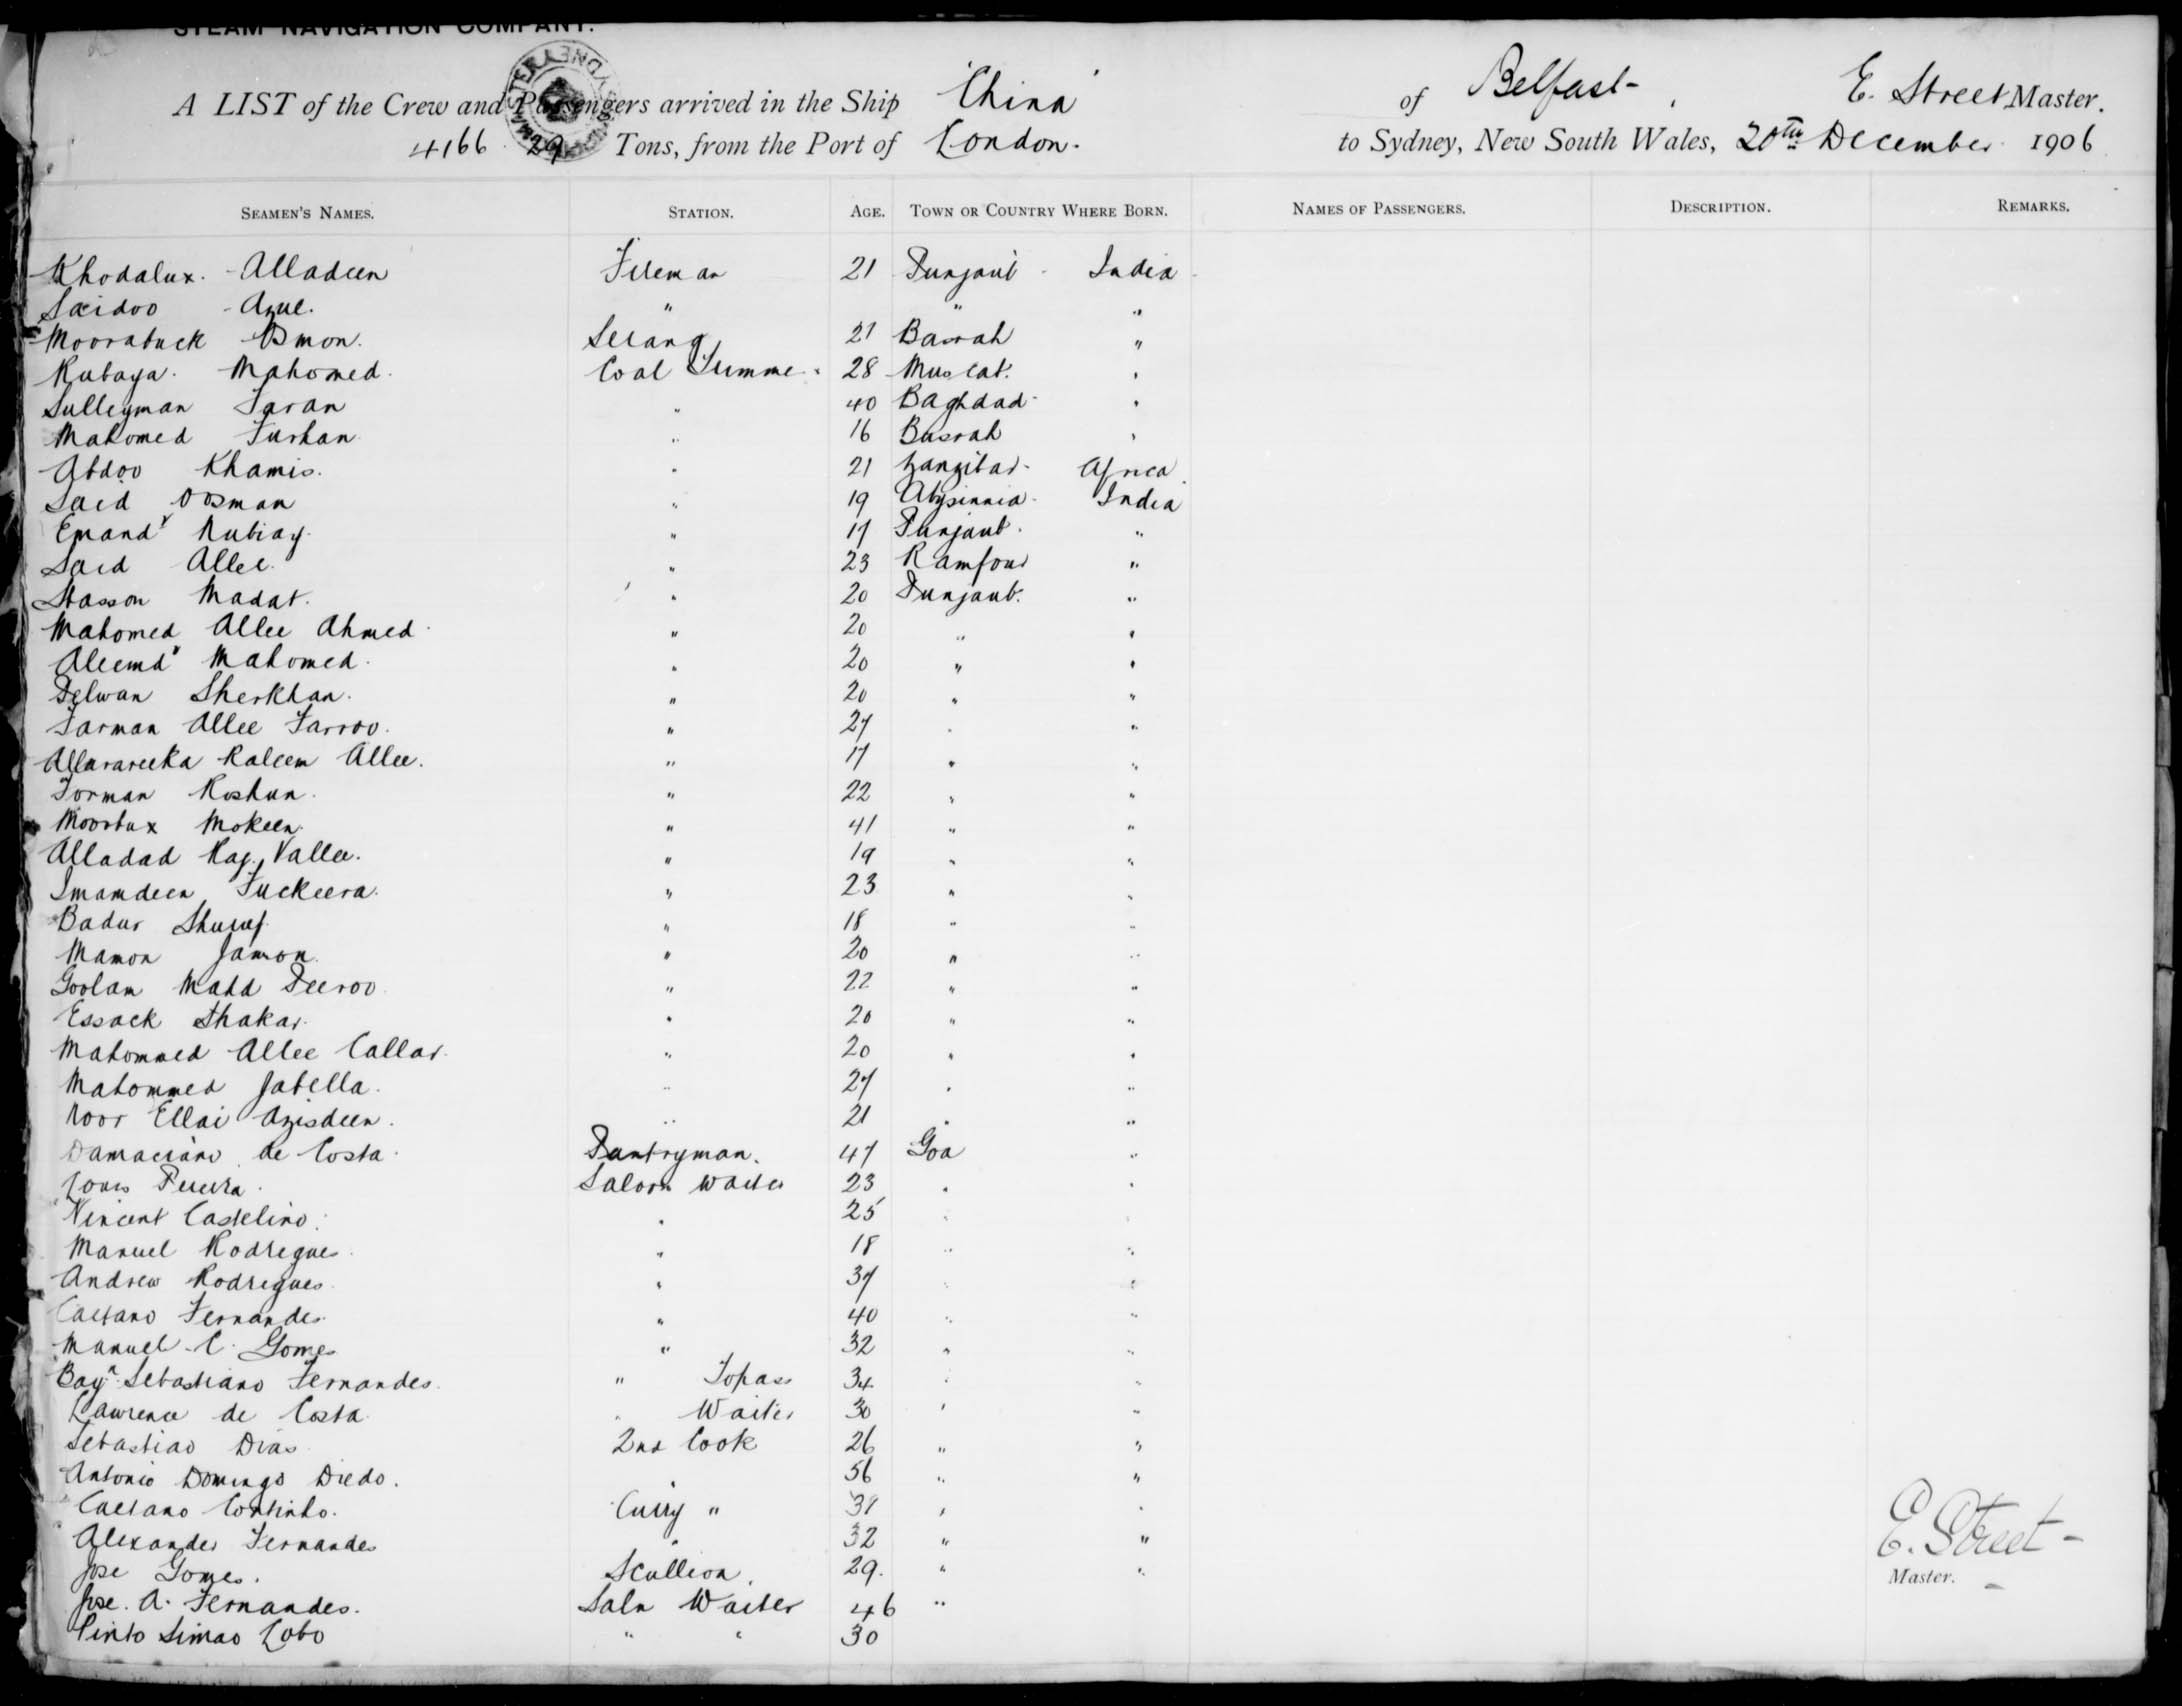 STEAM NAVIGATION COMPANY.
A LIST of the Crew and Passengers arrived in the Ship "China" of Belfast, E. Street Master.
4166 29 Tons, from the Port of London. to Sydney, New South Wales, 20th December 1906
SEAMEN'S NAMES. STATION. AGE. TOWN OR COUNTRY WHERE BORN. NAMES OF PASSENGERS. DESCRIPTION. REMARKS.
Khodalux. Alladeen Fireman 21 Punjaub India
Saidoo Azul. " " "
Moorabuck Osmon. Serang 21 Basrah "
Rubaya. Mahomed. Coal Trimmer 28 Muscat. "
Sulleyman Faran " 40 Baghdad "
Mahomed Furhan " 16 Busrah "
Abdoo Khamis. " 21 Zanzibar Africa
Said Oosman " 19 Abysinnia India
Emand Nubiay. " 17 Punjaub. "
Said Allee. " 23 Ramfour "
Hasson Madat. " 20 Punjaub. "
Mahomed Allee Ahmed " 20 " "
Aleemd Mahomed. " 20 " "
Pelwan Sherkhan. " 20 " "
Farman Allee Farroo. " 27 " "
Allarareeka Kaleem Allee. " 17 " "
Forman Roshun. " 22 " "
Moorbux Mokeen. " 41 " "
Alladad Vallee. " 19 " "
Imamdeen Fuckeera. " 23 " "
Badur Shureef. " 18 " "
Mamon Jamon. " 20 " "
Goolam Mahd Peeroo " 22 " "
Essack Thakar. " 20 " "
Mahommed Allee Callar. " 20 " "
Mahommed Jabella. " 27 " "
Noor Ellai Azisdeen. " 21 " "
Damaciano de Costa. Pantryman. 47 Goa "
Louis Pereira. Saloon Waiter 23 " "
Vincent Castelino. " 25 " "
Manuel Rodregues. " 18 " "
Andrew Rodregues. " 37 " "
Caetano Fernandes. " 40 " "
Manuel C. Gomes " 32 " "
Sebastiano Fernandes. " Topass 34 " "
Lawrence de Costa " Waiter 30 " "
Sebastiao Dias 2nd Cook 26 " "
Antonio Domingo Diedo. " 56 " "
Caetano Continho. Curry " 39 " "
Alexander Fernandes " 32 " "
Jose Gomes. Scullion. 29. " "
Jose. A. Fernandes. Saln Waiter 46 "
Pinto Simao Lobo " " 30
E. Street
Master.